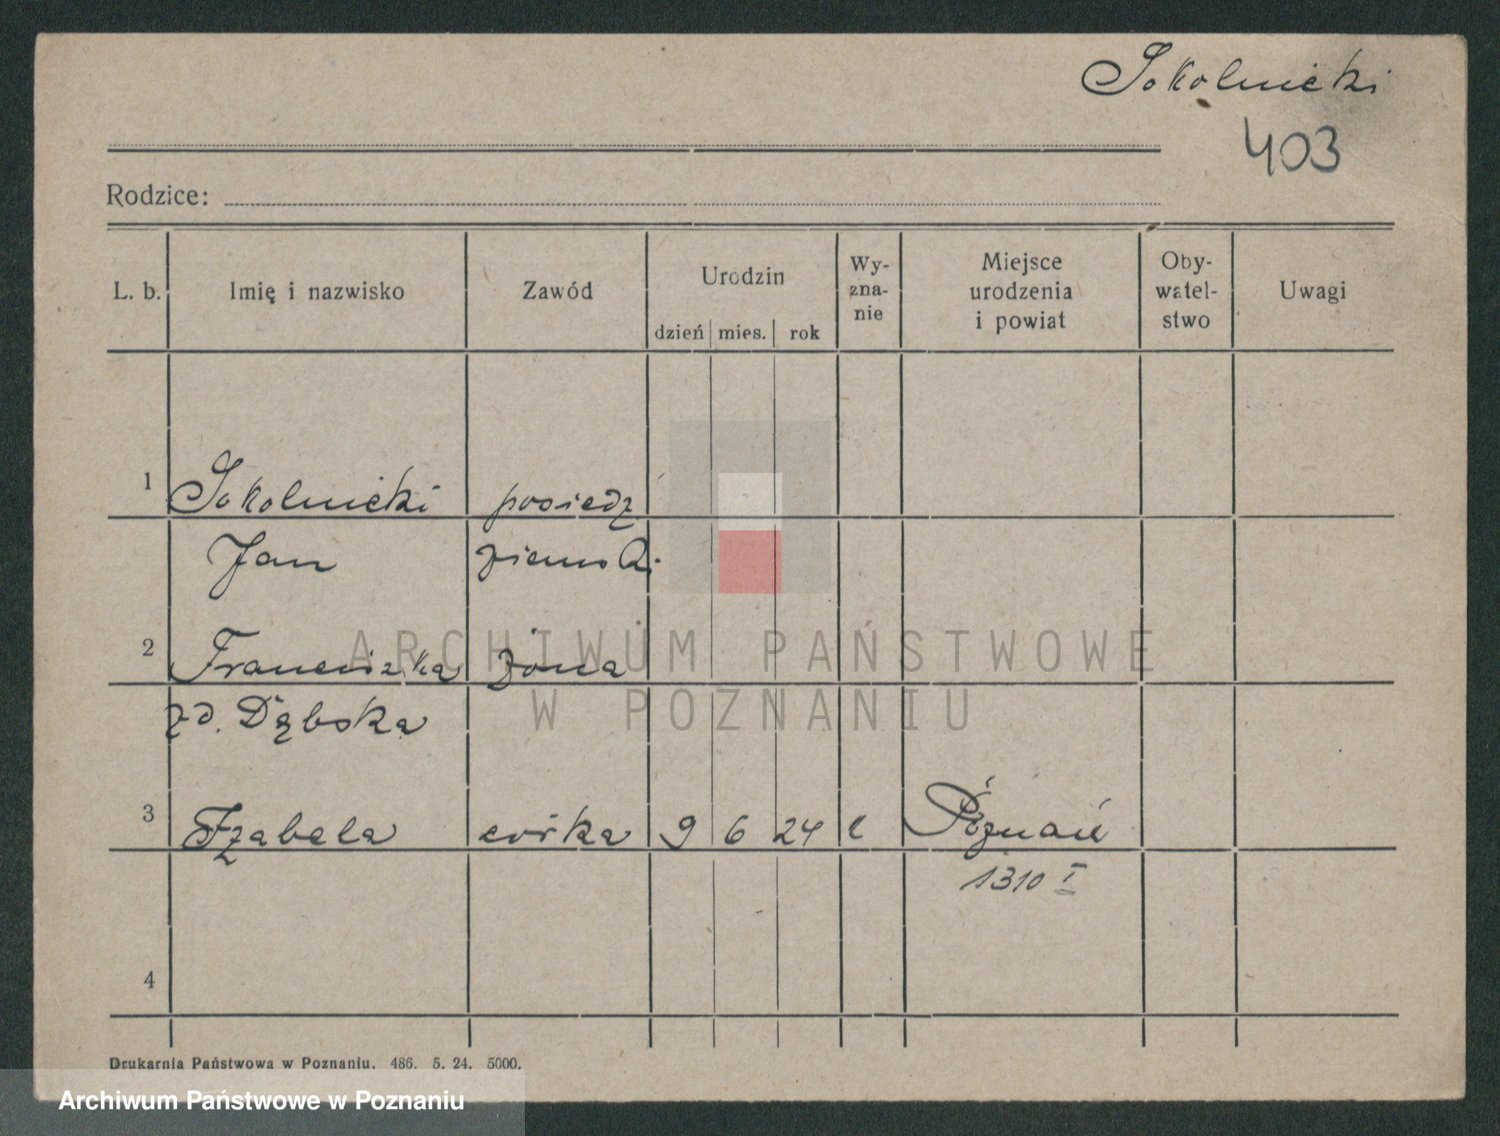 Sokolnicki
403
Rodzice:
L. b. Imię i nazwisko Zawód Urodzin dzień mies. rok Wy-zna-nie Miejsce urodzenia i powiat Oby-watel-stwo Uwagi
1 Sokolnicki posiedz
Jan ziemski
2 Franciszka żona
zd. Dąbska
3 Izabela córka 9 6 24 Poznań
1310 I
4
Drukarnia Państwowa w Poznaniu. 486. 5. 24. 5000.
ARCHIWUM PAŃSTWOWE
W POZNANIU
Archiwum Państwowe w Poznaniu